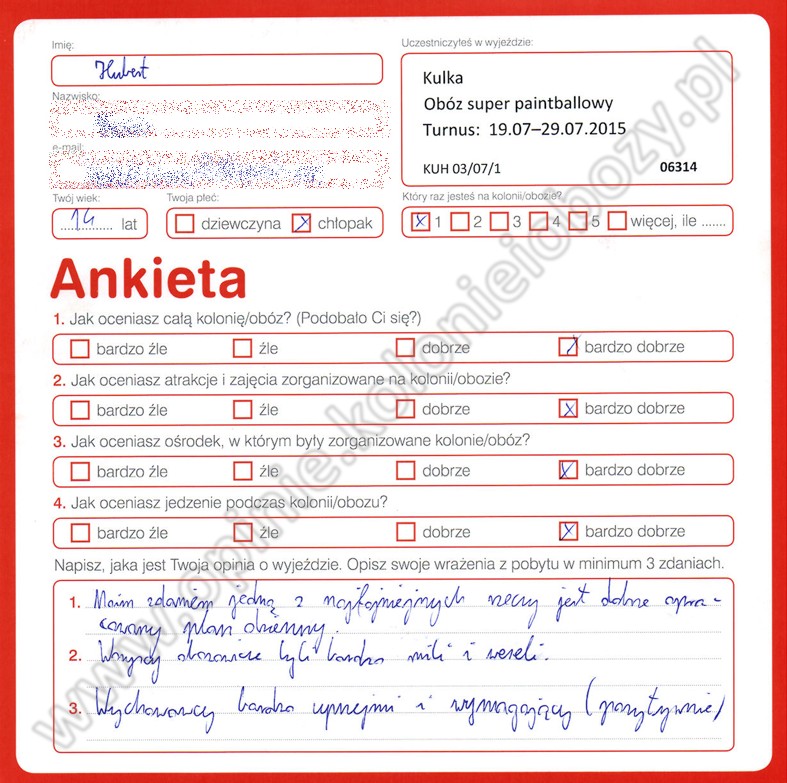 Imię:
Hubert
Nazwisko:
e-mail:
Twój wiek:
14 lat
Twoja płeć:
dziewczyna chłopak
Uczestniczyłeś w wyjeździe:
Kulka
Obóz super paintballowy
Turnus: 19.07–29.07.2015
KUH 03/07/1 06314
Który raz jesteś na kolonii/obozie?
1 2 3 4 5 więcej, ile .......
Ankieta
1. Jak oceniasz całą kolonię/obóz? (Podobało Ci się?)
bardzo źle źle dobrze bardzo dobrze
2. Jak oceniasz atrakcje i zajęcia zorganizowane na kolonii/obozie?
bardzo źle źle dobrze bardzo dobrze
3. Jak oceniasz ośrodek, w którym były zorganizowane kolonie/obóz?
bardzo źle źle dobrze bardzo dobrze
4. Jak oceniasz jedzenie podczas kolonii/obozu?
bardzo źle źle dobrze bardzo dobrze
Napisz, jaka jest Twoja opinia o wyjeździe. Opisz swoje wrażenia z pobytu w minimum 3 zdaniach.
1. Moim zdaniem jedną z najfajniejnych rzeczy jest dobrze opra-
cowany plan dzienny.
2. Wszyscy obozowicze byli bardzo mili i weseli.
3. Wychowawcy bardzo uprzejmi i wymagający (pozytywnie)
www.opinie.kolonieiobozy.pl